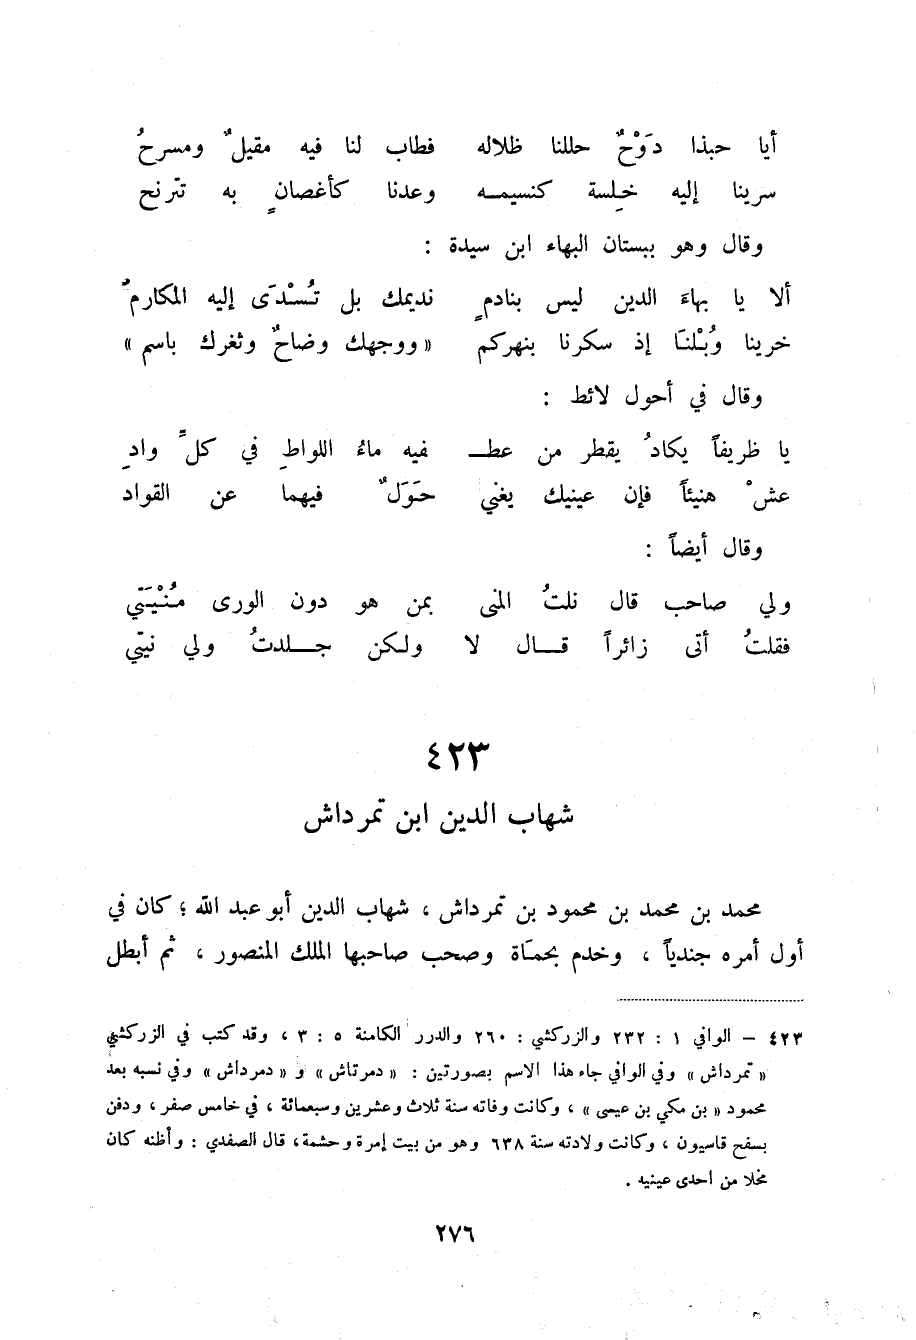 أيا حبذا دَوْحٌ حللنا ظلاله فطاب لنا فيه مقيلٌ ومسرحُ
سرينا إليه خلِسة كنسيمـــه وعدنا كأغصانٍ به تترنح
وقال وهو ببستان البهاء ابن سيدة :
ألا يا بهاءَ الدين ليس بنادمٍ نديمك بل تُسْدَى إليه المكارمُ
خرينا وبُلْنَا إذ سكرنا بنهركم «ووجهك وضاحٌ وثغرك باسم»
وقال في أحول لائط :
يا ظريفاً يكادُ يقطر من عطـــ فيه ماءُ اللواطِ في كلِّ وادِ
عشْ هنيئاً فإن عينيك يغني حَوَلٌ فيهما عن القواد
وقال أيضاً :
ولي صاحب قال نلتُ المنى بمن هو دون الورى مُنْيَتي
فقلتُ أتى زائراً قـــال لا ولـكن جـــلدتُ ولي نيتي
٤٢٣
شهاب الدين ابن تمرداش
محمد بن محمد بن محمود بن تمرداش ، شهاب الدين أبو عبد الله ؛ كان في
أول أمره جندياً ، وخدم بحمَاة وصحب صاحبها الملك المنصور ، ثم أبطل
٤٢٣ – الوافي ١ : ٢٣٢ والزركشي : ٢٦٠ والدرر الكامنة ٥ : ٣ ، وقد كتب في الزركشي
« تمرداش » وفي الوافي جاء هذا الاسم بصورتين : « دمرتاش » و « دمرداش » وفي نسبه بعد
محمود « بن مكي بن عيسى » ، وكانت وفاته سنة ثلاث وعشرين وسبعمائة ، في خامس صفر ، ودفن
بسفح قاسيون ، وكانت ولادته سنة ٦٣٨ وهو من بيت إمرة وحشمة، قال الصفدي : وأظنه كان
مخلا من أحدى عينيه .
٢٧٦